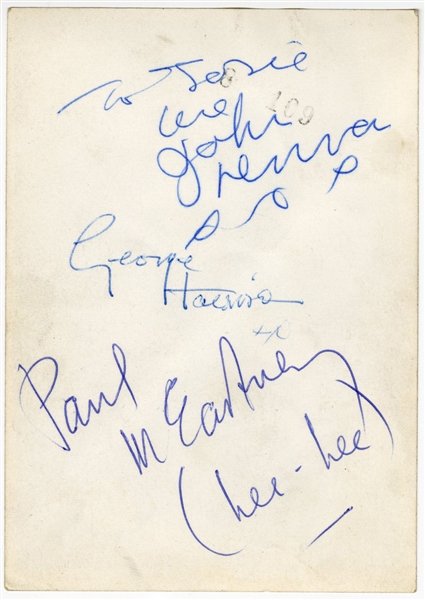 To Josie
love
John
Lennon
xox
George
Harrison
xx
Paul
McCartney
(hee-hee)